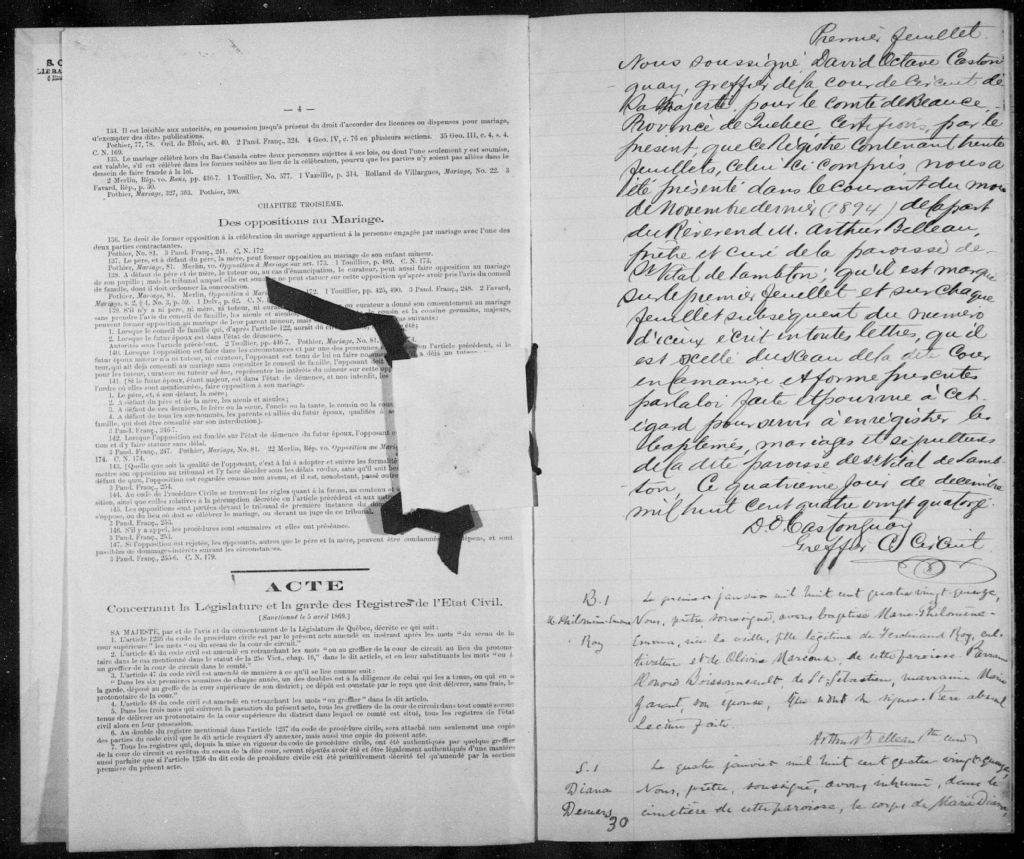 — 4 —
134. Il est loisible aux autorités, en possession jusqu'à présent du droit d'accorder des licences ou dispenses pour mariage,
d'exempter des dites publications.
Pothier, 77, 78. Ord. de Blois, art. 40. 2 Pand. Franç., 324. 4 Geo. IV, c. 76 en plusieurs sections. 35 Geo. III, c. 4, s. 4.
C. N. 169.
135. Le mariage célébré hors du Bas-Canada entre deux personnes sujettes à ses lois, ou dont l'une seulement y est soumise,
est valable, s'il est célébré dans les formes usitées au lieu de la célébration, pourvu que les parties n'y soient pas allées dans le
dessein de faire fraude à la loi.
2 Merlin, Rép. vo. Bans, pp. 436-7. 1 Toullier, No. 577. 1 Vazeille, p. 314. Rolland de Villargues, Mariage, No. 22. 3
Favard, Rép., p. 50.
Pothier, Mariage, 327, 363. Pothier, 390.
CHAPITRE TROISIÈME.
Des oppositions au Mariage.
136. Le droit de former opposition à la célébration du mariage appartient à la personne engagée par mariage avec l'une des
deux parties contractantes.
Pothier, No. 81. 3 Pand. Franç., 241. C. N. 172
137. Le père, et à défaut du père, la mère, peut former opposition au mariage de son enfant mineur.
Pothier, Mariage, 81. Merlin, vo. Opposition à Mariage sur art. 173. 1 Toullier, p. 489. C. N. 173.
138. A défaut de père et de mère, le tuteur ou, au cas d'émancipation, le curateur, peut aussi faire opposition au mariage
de son pupille; mais le tribunal auquel elle est soumise ne peut statuer sur cette opposition qu'après avoir pris l'avis du conseil
de famille, dont il doit ordonner la convocation.
Pothier, Mariage, 81. Merlin, Opposition à Mar 172. 1 Toullier, pp. 425, 490. 3 Pand. Franç., 248. 2 Favard,
Mariage, s. 2, § 4, No. 3, p. 59. 1 Delv., p. 62. C. N.
139. S'il n'y a ni père, ni mère, ni tuteur, ni curateur a donné son consentement au mariage
sans prendre l'avis du conseil de famille, les aïeuls et aïeules cousin et la cousine germains, majeurs,
peuvent former opposition au mariage de leur parent mineur, mais suivants:
1. Lorsque le conseil de famille qui, d'après l'article 122, aurait dû té;
2. Lorsque le futur époux est dans l'état de démence.
Autorités sous l'article précédent. 2 Toullier, pp. 446-7. Pothier, Mariage, No. 81.
140. Lorsque l'opposition est faite dans les circonstances et par une des personnes l'article précédent, si le
futur époux mineur n'a ni tuteur, ni curateur, l'opposant est tenu de lui en faire nom a déjà un tuteur
teur, qui ait déjà consenti au mariage sans consulter le conseil de famille, l'opposant
pour les tuteur, curateur ou tuteur ad hoc, représenter les intérêts du mineur sur cette opp
141. [Si le futur époux, étant majeur, est dans l'état de démence, et non interdit, les
l'ordre où elles sont mentionnées, faire opposition à son mariage.
1. Le père, et, à son défaut, la mère;
2. A défaut du père et de la mère, les aïeuls et aïeules;
3. A défaut de ces derniers, le frère ou la sœur, l'oncle ou la tante, le cousin ou la cous
4. A défaut de tous les sus-nommés, les parents et alliés du futur époux, qualifiés à
famille, qui doit être consulté sur son interdiction.]
3 Pand. Franç., 246-7.
142. Lorsque l'opposition est fondée sur l'état de démence du futur époux, l'opposant
tion et d'y faire statuer sans délai.
3 Pand. Franç., 247. Pothier, Mariage, No. 81. 22 Merlin, Rép., vo. Opposition au Mari
174. C. N. 174.
143. [Quelle que soit la qualité de l'opposant, c'est à lui à adopter et suivre les formalité
mettre son opposition au tribunal et l'y faire décider sous les délais voulus, sans qu'il soit be
défaut de quoi, l'opposition est regardée comme non avenue, et il est, nonobstant, passé outre
3 Pand. Franç., 254.
144. Au code de Procédure Civile se trouvent les règles quant à la forme, au contenu et
sition, ainsi que celles relatives à la péremption décrétée en l'article précédent et aux autre
145. Les oppositions sont portées devant le tribunal de première instance du
s'oppose, ou du lieu où doit se célébrer le mariage, ou devant un juge de ce tribunal
3 Pand. Franç., 253.
146. S'il y a appel, les procédures sont sommaires et elles ont préséance.
3 Pand. Franç., 253.
147. Si l'opposition est rejetée, les opposants, autres que le père et la mère, peuvent être condamnés dépens, et sont
passibles de dommages-intérêts suivant les circonstances.
3 Pand. Franç., 255-6. C. N. 179.
ACTE
Concernant la Législature et la garde des Registres de l'Etat Civil.
[Sanctionné le 5 avril 1869.]
SA MAJESTÉ, par et de l'avis et du consentement de la Législature de Québec, décrète ce qui suit:
1. L'article 1236 du code de procédure civile est par le présent acte amendé en insérant après les mots "du sceau de la
cour supérieure" les mots "ou du sceau de la cour de circuit."
2. L'article 45 du code civil est amendé en retranchant les mots "ou au greffier de la cour de circuit au lieu du protono-
taire dans le cas mentionné dans le statut de la 25e Vict., chap. 16," dans le dit article, et en leur substituant les mots "ou à
un greffier de la cour de circuit dans le comté."
3. L'article 47 du code civil est amendé de manière à ce qu'il se lise comme suit:
"Dans les six premières semaines de chaque année, un des doubles est à la diligence de celui qui les a tenus, ou qui en a
la garde, déposé au greffe de la cour supérieure de son district; ce dépôt est constaté par le reçu que doit délivrer, sans frais, le
protonotaire de la cour."
4. L'article 48 du code civil est amendé en retranchant les mots "ou greffier" dans le dit article.
5. Dans les trois mois qui suivront la passation du présent acte, tous les greffiers de la cour de circuit dans tout comté seront
tenus de délivrer au protonotaire de la cour supérieure du district dans lequel ce comté est situé, tous les registres de l'état
civil alors en leur possession.
6. Au double du registre mentionné dans l'article 1237 du code de procédure civile, sera attaché non seulement une copie
des parties du code civil que le dit article requiert d'y annexer, mais aussi une copie du présent acte.
7. Tous les registres qui, depuis la mise en vigueur du code de procédure civile, ont été authentiqués par quelque greffier
de la cour de circuit et revêtus du sceau de la dite cour, seront réputés avoir été et être légalement authentiqués d'une manière
aussi parfaite que si l'article 1236 du dit code de procédure civile eût été primitivement décrété tel qu'amendé par la section
première du présent acte.
Premier feuillet.
Nous soussigné David Octave Caston
guay, greffier de la cour de Circuit de
Sa Majesté pour le comté de Beauce
Province de Quebec Certifions par le
présent que ce Régistre Contenant trente
feuillets, Celui ici compris nous a
été présenté dans le courant du mois
de Novembre dernier (1894) de la part
du Révérend M. Arthur Belleau,
prêtre et curé de la paroisse de
St Vital de Lambton; qu'il est marqué
sur le premier feuillet et sur chaque
feuillet subséquent du numéro
d'iceux écrit en toutes lettres, qu'il
est scellé du sceau de la dite Cour
en la maniere et forme prescrites
par la loi faite et pourvue à cet
égard pour servir à enregistrer les
baptêmes, mariages et sépultures
de la dite paroisse de St Vital de Lamb-
ton, Ce quatrième jour de decembre
mil huit cent quatre vingt quatorze.
D. O. Castonguay
Greffier C. Circuit
B. 1 Le premier janvier mil huit cent quatre vingt quinze,
M. Philomène-Emma Nous, prêtre soussigné, avons baptisé Marie-Philomène-
Roy Emma, née la veille, fille légitime de Ferdinand Roy, cul
tivateur et de Olivine Marcoux, de cette paroisse. Parrain
Honoré Boissonneault de St Sébastien, marraine Marie
Garant, son épouse, Qui n'ont su signer. Père absent
Lecture faite.
Arthur Belleau Ptre curé
S. 1 Le quatre janvier mil huit cent quatre vingt quinze,
Diana Nous, prêtre, soussigné, avons inhumé, dans le
Demers cimetière de cette paroisse, le corps de Marie Diana,
30